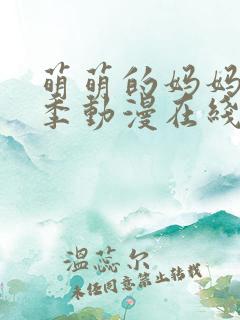 萌萌的妈妈
季動漫在綫
温蕊尔
未经同意禁止转载